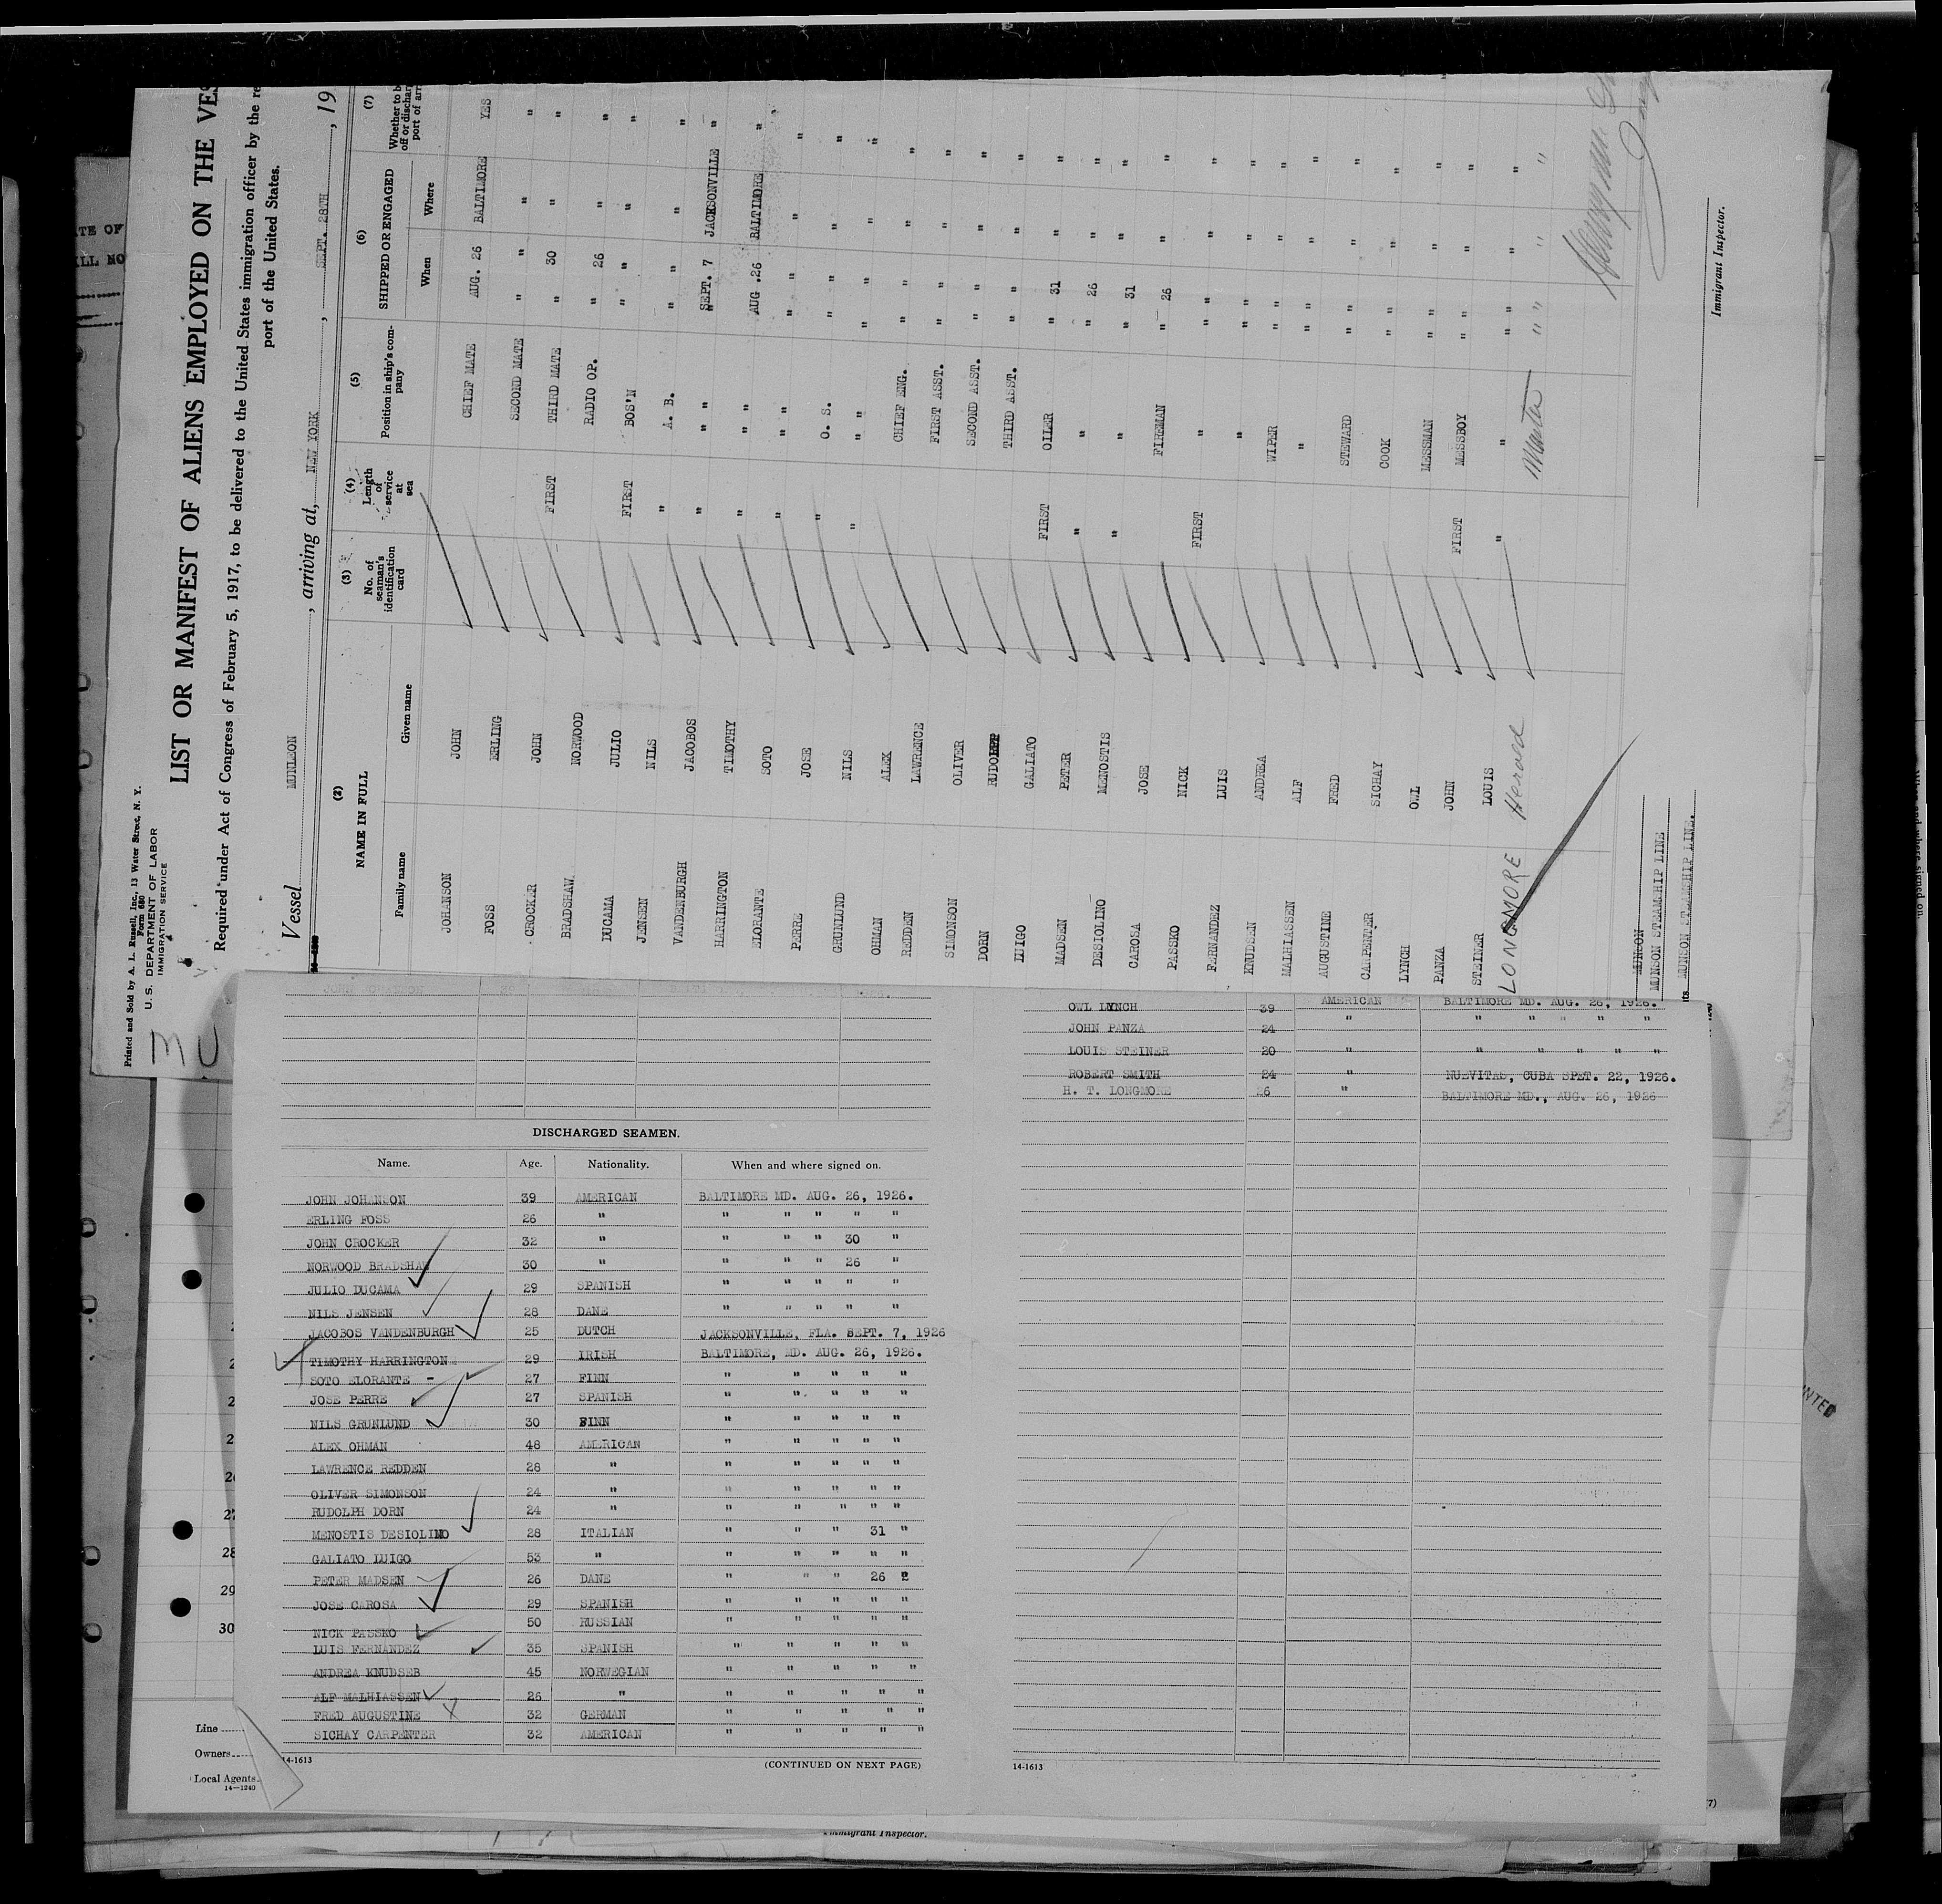 Printed and Sold by A. L. Russell, Inc., 13 Water Street, N. Y.
Form 680
U. S. DEPARTMENT OF LABOR
IMMIGRATION SERVICE
MU
LIST OR MANIFEST OF ALIENS EMPLOYED ON THE VES
Required under Act of Congress of February 5, 1917, to be delivered to the United States immigration officer by the re
port of the United States.
Vessel MUNLEON, arriving at, NEW YORK, SEPT. 28TH, 19
(2) (3) (4) (5) (6) (7)
NAME IN FULL No. of seaman's identification card Length of service at sea Position in ship's company SHIPPED OR ENGAGED Whether to b
off or dischar
port of arr
Family name Given name When Where
JOHANSON JOHN CHIEF MATE AUG. 26 BALTIMORE YES
FOSS ERLING SECOND MATE " " " "
CROCKER JOHN FIRST THIRD MATE " 30 " "
BRADSHAW. NORWOOD RADIO OP. " 26 " "
DUCAMA JULIO FIRST BOS'N " " " "
JENSEN NILS " A. B. " " " "
VANDENBURGH JACOBOS " " " SEPT. 7 JACKSONVILLE "
HARRINGTON TIMOTHY " " " AUG .26 BALTIMORE "
ELORANTE SOTO " " " " " " "
PERRE JOSE " O. S. " " " "
GRUNLUND NILS " " " " " " "
OHMAN ALEX CHIEF ENG. " " " "
REDDEN LAWRENCE FIRST ASST. " " " "
SIMONSON OLIVER SECOND ASST. " " " "
DORN RUDOLPH THIRD ASST. " " " "
LUIGO GALIATO FIRST OILER " 31 " "
MADSEN PETER " " " 26 " "
DESIOLINO MENOSTIS " " " 31 " "
CAROSA JOSE FIREMAN " 26 " "
PASSKO NICK FIRST " " " " "
FERNANDEZ LUIS " " " " "
KNUDSEN ANDREA WIPER " " " "
MALHIASSEN ALF " " " " "
AUGUSTINE FRED STEWARD " " " "
CARPENTER SICHAY COOK " " " "
LYNCH OWL MESSMAN " " " "
PANZA JOHN FIRST MESSBOY " " " "
STEINER LOUIS " " " " " "
LONGMORE Master " " " "
Immigrant Inspector.
MUNSON
MUNSON STEAMSHIP LINE
MUNSON STEAMSHIP LINE.
DISCHARGED SEAMEN.
Name. Age. Nationality. When and where signed on.
JOHN JOHANSON 39 AMERICAN BALTIMORE MD. AUG. 26, 1926.
ERLING FOSS 26 " " " " " "
JOHN CROCKER 32 " " " " 30 "
NORWOOD BRADSHAW 30 " " " " 26 "
JULIO DUCAMA 29 SPANISH " " " " "
NILS JENSEN 28 DANE " " " " "
JACOBOS VANDENBURGH 25 DUTCH JACKSONVILLE, FLA. SEPT. 7, 1926
TIMOTHY HARRINGTON 29 IRISH BALTIMORE, MD. AUG. 26, 1926.
SOTO ELORANTE - 27 FINN " " " " "
JOSE PERRE 27 SPANISH " " " " "
NILS GRUNLUND 30 FINN " " " " "
ALEX OHMAN 48 AMERICAN " " " " "
LAWRENCE REDDEN 28 " " " " " "
OLIVER SIMONSON 24 " " " " " "
RUDOLPH DORN 24 " " " " " "
MENOSTIS DESIOLINO 28 ITALIAN " " " 31 "
GALIATO LUIGO 53 " " " " " "
PETER MADSEN 26 DANE " " " 26 "
JOSE CAROSA 29 SPANISH " " " " "
NICK PASSKO 50 RUSSIAN " " " " "
LUIS FERNANDEZ 35 SPANISH " " " " "
ANDREA KNUDSEB 45 NORWEGIAN " " " " "
ALF MALHIASSEN 26 " " " " " "
FRED AUGUSTINE X 32 GERMAN " " " " "
SICHAY CARPENTER 32 AMERICAN " " " " "
14-1613
(CONTINUED ON NEXT PAGE)
OWL LYNCH 39 AMERICAN BALTIMORE MD. AUG. 26, 1926.
JOHN PANZA 24 " " " " " "
LOUIS STEINER 20 " " " " " "
ROBERT SMITH 24 " NUEVITAS, CUBA SPET. 22, 1926.
H. T. LONGMORE 26 " BALTIMORE MD., AUG. 26, 1926
14-1613
28
29
30
Line
Owners
Local Agents
14-1240
Immigrant Inspector.